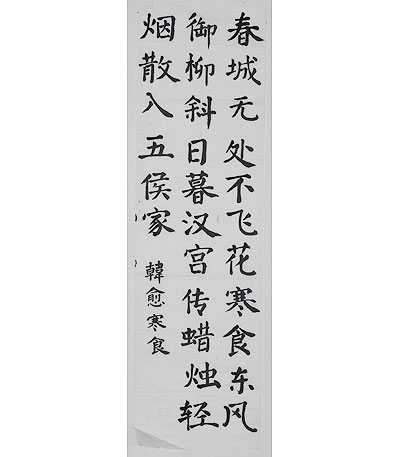 春城无处不飞花寒食东风
御柳斜日暮汉宫传蜡烛轻
烟散入五侯家
韓愈寒食